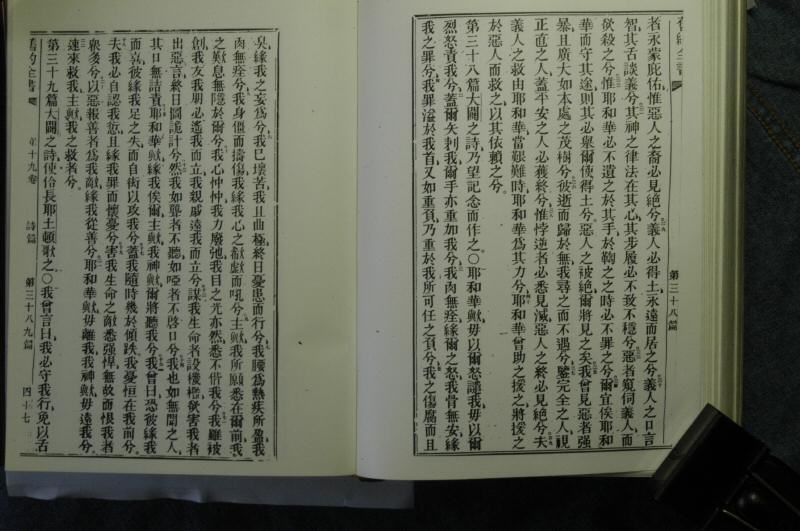 舊約全書
者永蒙庇佑惟惡人之裔必見絕兮義人必得土永遠而居之兮義人之口言
智其舌談義兮其神之律法在其心其步履必不致不穩兮惡者窺伺義人而
欲殺之兮惟耶和華必不遺之於其手於鞫之之時必不罪之兮爾宜俟耶和
華而守其途則其必舉爾使得土兮惡人之被絕爾將見之矣我曾見惡者强
暴且廣大如本處之茂樹兮彼逝而歸於無我尋之而不遇兮鑒完全之人視
正直之人蓋平安之人必獲終兮惟悖逆者必悉見滅惡人之終必見絕兮夫
義人之救由耶和華當艱難時耶和華爲其力兮耶和華曾助之援之將援之
於惡人而救之以其依賴之兮
第三十八篇大闢之詩乃望記念而作之〇耶和華歟毋以爾怒譴我毋以爾
烈怒責我兮蓋爾矢刺我爾手亦重加我兮我肉無痊緣爾之怒我骨無安緣
我之罪兮我罪溢於我首又如重負乃重於我所可任之負兮我之傷腐而且
第三十八篇
臭緣我之妄爲兮我已壞苦我且曲極終日憂患而行兮我腰爲熱疾所盈我
肉無痊兮我身僵而擣傷我緣我心之獻歔而吼兮主歟我所願悉在爾前我
之歎息無隱於爾兮我心忡忡我力廢弛我目之光亦然悉不偕我兮我雖被
創我友我朋必遙我而立我親戚遠我而立兮謀我生命者設機檻欲害我者
出惡言終日圖詭計兮然我如聾者不聽如啞者不啓口兮我也如無聞之人
其口無詰責耶和華歟緣我俟爾主歟我神歟爾將聽我兮我曾曰恐彼緣我
而喜彼緣我足之失而自衒以攻我兮蓋我隨時幾於傾跌我憂恒在我前兮
夫我必自認我愆且緣我罪而懷憂兮害我生命之敵悉强悍無故而恨我者
衆多兮以惡報善者爲我敵緣我從善兮耶和華歟毋離我我神歟毋遠我兮
速來救我主歟我之救者兮
第三十九篇大闢之詩使伶長耶土頓歌之〇我曾言曰我必守我行免以舌
舊約全書
第十九卷
詩篇
第三十八九篇
四十七